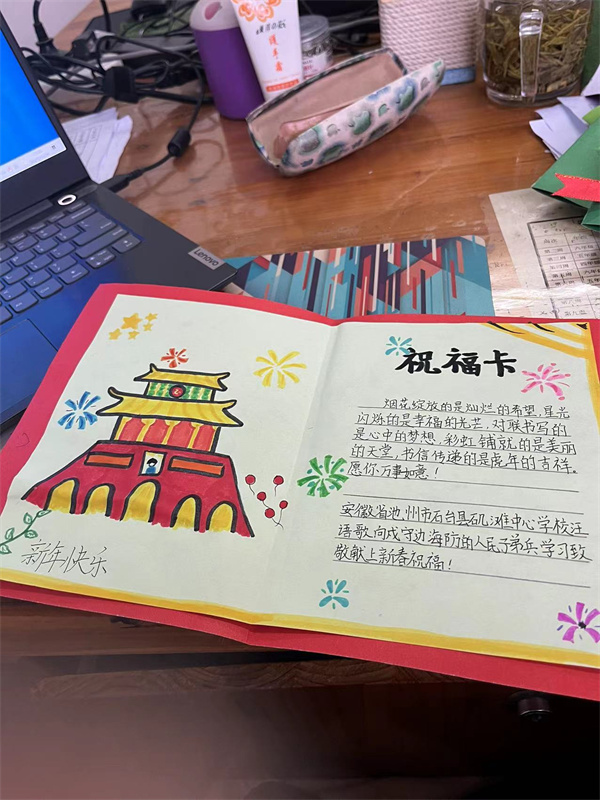 护手霜
Lenovo
新年快乐
祝福卡
烟花绽放的是灿烂的希望,星光
闪烁的是幸福的光芒,对联书写的
是心中的梦想,彩虹铺就的是美丽
的天堂,书信传递的是虎年的吉祥。
愿你万事如意!
安徽省池州市石台县矶滩中心学校汪
语歌向戍守边海防的人民子弟兵学习致
敬献上新春祝福!